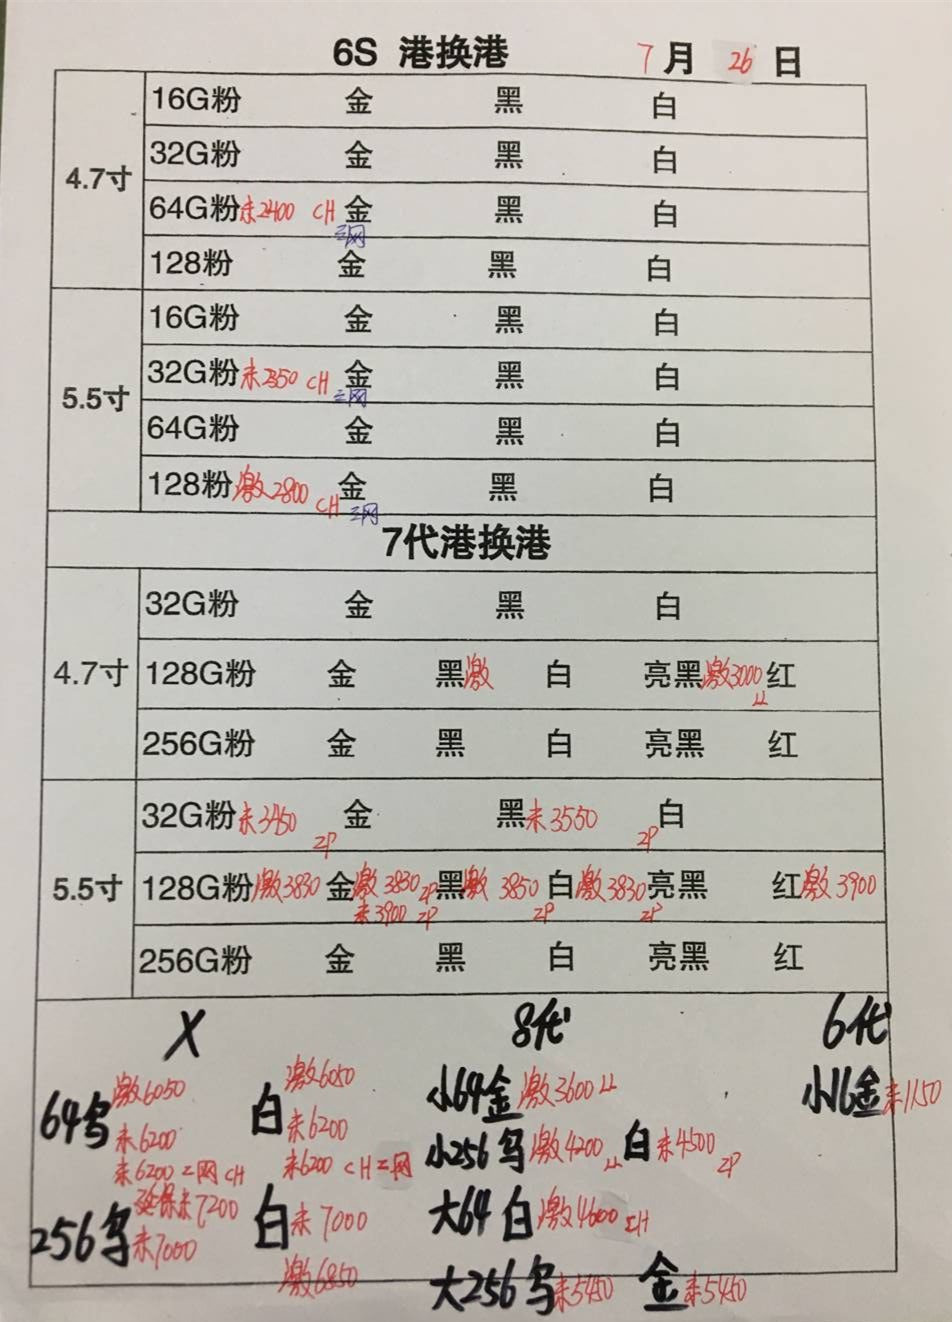 6S 港换港 7月 26 日
4.7寸
16G粉 金 黑 白
32G粉 金 黑 白
64G粉 未2400 CH 金 黑 白
三网
128粉 金 黑 白
5.5寸
16G粉 金 黑 白
32G粉 未2350 CH 金 黑 白
三网
64G粉 金 黑 白
128粉 激2800 CH 金 黑 白
三网
7代港换港
4.7寸
32G粉 金 黑 白
128G粉 金 黑激 白 亮黑激3000 LL 红
256G粉 金 黑 白 亮黑 红
5.5寸
32G粉未3450 ZP 金 黑未3550 ZP 白
128G粉激3830 金激3830 ZP 黑激 3850 ZP 白激3830 ZP 亮黑 红激3900
未3900 ZP
256G粉 金 黑 白 亮黑 红
X 8代 6代
64乌 激6050 白 激6050 小64金 激3600 LL 小16金 未1150
未6200 未6200 小256乌 激4200 LL 白 未4500 ZP
未6200 三网 CH 未6200 CH 三网
256乌 延保未7200 白 未7000 大64白 激4600 CH
未7000 激6850
大256乌 未5450 金 未5450